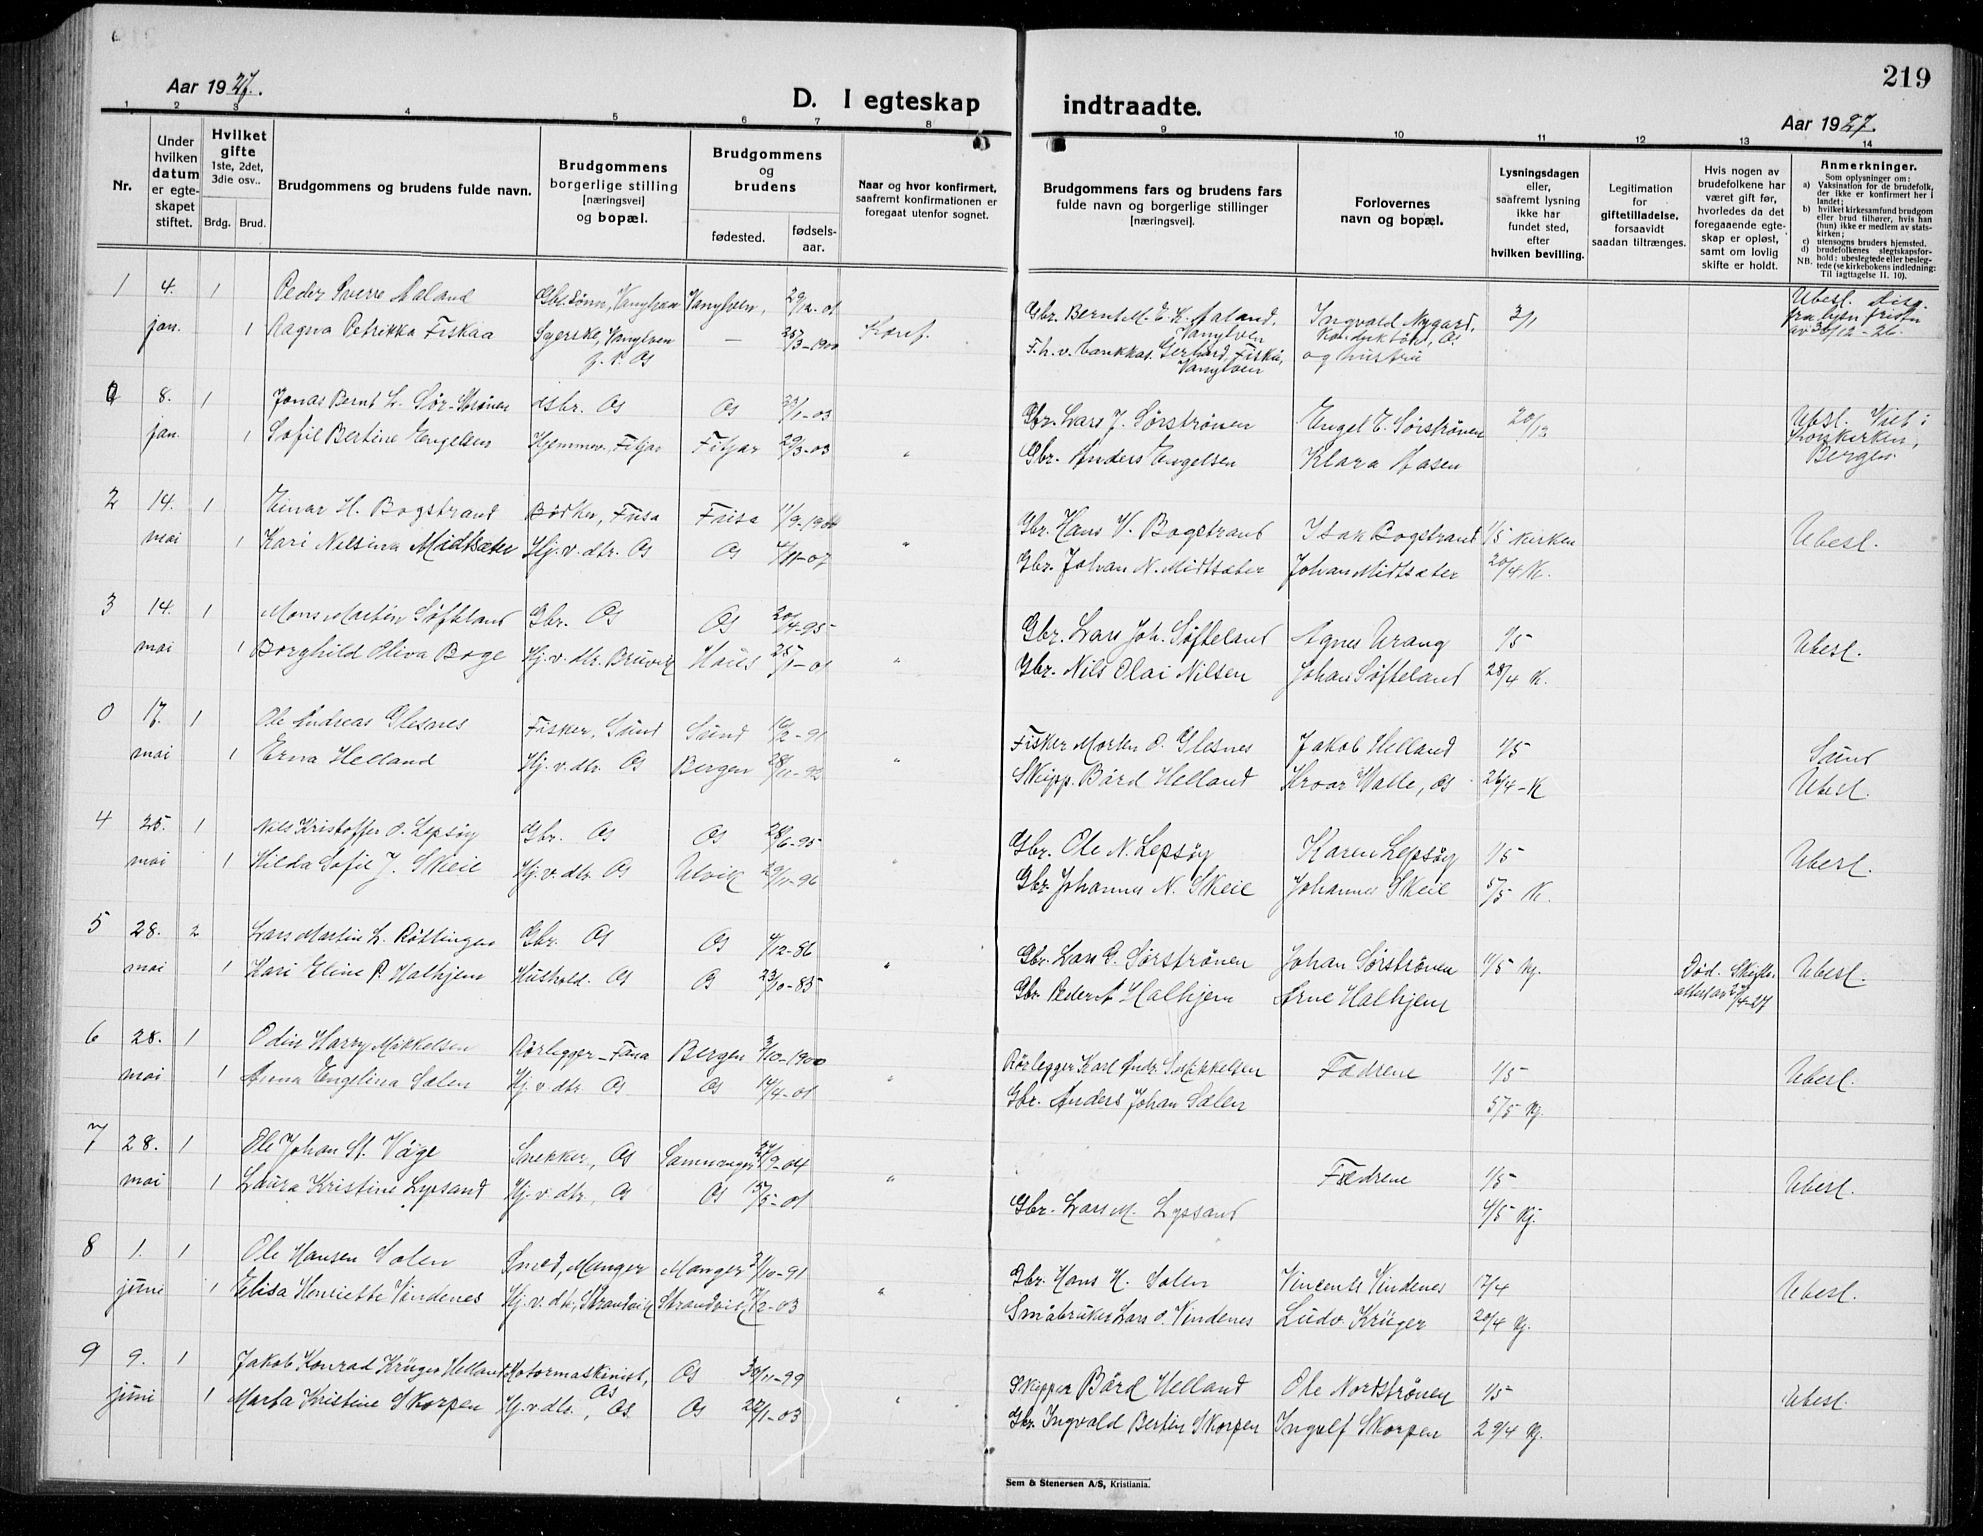 219
Aar 1927.
D. I egteskap indtraadte.
Aar 1927.
1 2 3 4 5 6 7 8 9 10 11 12 13 14
Nr.
Under hvilken datum er egteskapet stiftet.
Hvilket gifte 1ste, 2det, 3die osv..
Brdg. Brud.
Brudgommens og brudens fulde navn.
Brudgommens borgerlige stilling [næringsvei] og bopæl.
Brudgommens og brudens
fødested. fødselsaar.
Naar og hvor konfirmert, saafremt konfirmationen er foregaat utenfor sognet.
Brudgommens fars og brudens fars fulde navn og borgerlige stillinger [næringsvei].
Forlovernes navn og bopæl.
Lysningsdagen eller, saafremt lysning ikke har fundet sted, efter hvilken bevilling.
Legitimation for giftetilladelse, forsaavidt saadan tiltrænges.
Hvis nogen av brudefolkene har været gift før, hvorledes da det foregaaende egteskap er opløst, samt om lovlig skifte er holdt.
Anmerkninger.
Som oplysninger om:
a) Vaksination for de brudefolk, der ikke er konfirmert her i landet;
b) hvilket kirkesamfund brudgom eller brud tilhører, hvis han (hun) ikke er medlem av statskirken;
c) utensogns bruders hjemsted.
d) brudefolkenes slegtskapsforhold: ubeslegtede eller beslegtede (se kirkebokens indledning: Til iagttagelse II, 10).
NB.
1 4. 1 Peder Sverre Aaland Gbr.sønn, Vanylven Vanylven, 29/12-01 Gbr. Bernt M. E. K. Aaland, Vanylven Ingvald Nygard, Os 3/1 Ubesl. Disp. fra lysn.fristen av 30/12-26.
jan. 1 Ragna Petrikka Fiskaa Syerske, Vanylven p. t. Os — 25/3-1900 Konf. F.h.v. bankkas. Gerhard Fiskaa, Vanylven og hustru
0 8. 1 Jonas Bernt L. Sør-Strønen Gbr. Os Os 23/1-03 Gbr. Lars J. Sørstrønen Engel E. Sørstrønen 20/12 Ubesl. Viet i Korskirken, Bergen.
jan. 1 Sofie Bertine Engelsen Hjemmev. Fitjar Fitjar 29/3-03 " Gbr. Anders Engelsen Klara Aasen
2 14. 1 Einar H. Bogstrand Bødker, Fusa Fusa 11/9-1904 Gbr. Hans V. Bogstrand Isak Bogstrand 1/5 Kirken Ubesl.
mai 1 Kari Nilsina Midtsæter Hj.v. dtr. Os Os 4/11-07 " Gbr. Johan N. Midtsæter Johan Midtsæter 20/4 K.
3 14. 1 Mons Martin Søfteland Gbr. Os Os 20/4-95 Gbr. Lars Joh. Søfteland Agnes Vrang 1/5 Ubesl.
mai 1 Borghild Oliva Boge Hj.v. dtr. Bruvik Haus 25/1-01 " Gbr. Nils Olai Nilsen Johan Søfteland 28/4 K.
0 17. 1 Ole Andreas Glesnes Fisker, Sund Sund 16/2-91 Fisker Morten O. Glesnes Jakob Helland 1/5 Sund
mai 1 Erna Helland Hj.v. dtr. Os Bergen 28/11-92 " Skipp. Bård Helland Hroar Valle, Os 26/4-K Ubesl.
4 25. 1 Nils Kristoffer O. Lepsøy Gbr. Os Os 28/6-95 Gbr. Ole N. Lepsøy Karen Lepsøy 1/5 Ubesl.
mai 1 Hilda Sofie J. Skeie Hj.v. dtr. Os Ulvik 29/11-96 " Gbr. Johannes N. Skeie Johannes Skeie 5/5 K.
5 28. 2 Lars Martin L. Røttingen Gbr. Os Os 4/12-86 Gbr. Lars G. Sørstrønen Johan Sørstrønen 11/5 Kj. Død. Skifteattest av 27/4-27 Ubesl.
mai 1 Kari Eline P. Halhjem Hushold. Os Os 23/10-85 " Gbr. Peder Halhjem Arne Halhjem
6 28. 1 Odin Harry Mikkelsen Rørlegger - Fana Bergen 3/10-1900 Rørlegger Karl Andr. Mikkelsen Fædrene 1/5 Ubesl.
mai 1 Anna Engelina Sælen Hj.v. dtr. Os Os 14/4-01 " Gbr. Anders Johan Sælen 5/5 Kj.
7 28. 1 Ole Johan St. Våge Snekker, Os Samnanger 27/9-04 Fædrene 1/5 Ubesl.
mai 1 Laura Kristine Lyssand Hj.v. dtr., Os Os 15/5-01 " Gbr. Lars M. Lyssand 4/5 Kj.
8 1. 1 Ole Hansen Solen Smed, Manger Manger 31/10-91 Gbr. Hans H. Solen Vincents Vindenes 17/4 Ubesl.
juni 1 Elisa Henriette Vindenes Hj.v. dtr., Strandvik Strandvik 7/2-03 " Småbruker Lars O. Vindenes Ludv. Krüger 20/4 Kj.
9 9. 1 Jakob Konrad Krüger Helland Motormaskinist, Os Os 30/11-99 Skipper Bård Helland Ole Nordstrønen 1/5 Ubesl.
juni 1 Marta Kristine Skorpen Hj.v. dtr., Os. Os 22/1-03 " Gbr. Ingvald Bertin Skorpen Ingolf Skorpen 29/4 Kj.
Sem & Stenersen A/S, Kristiania.